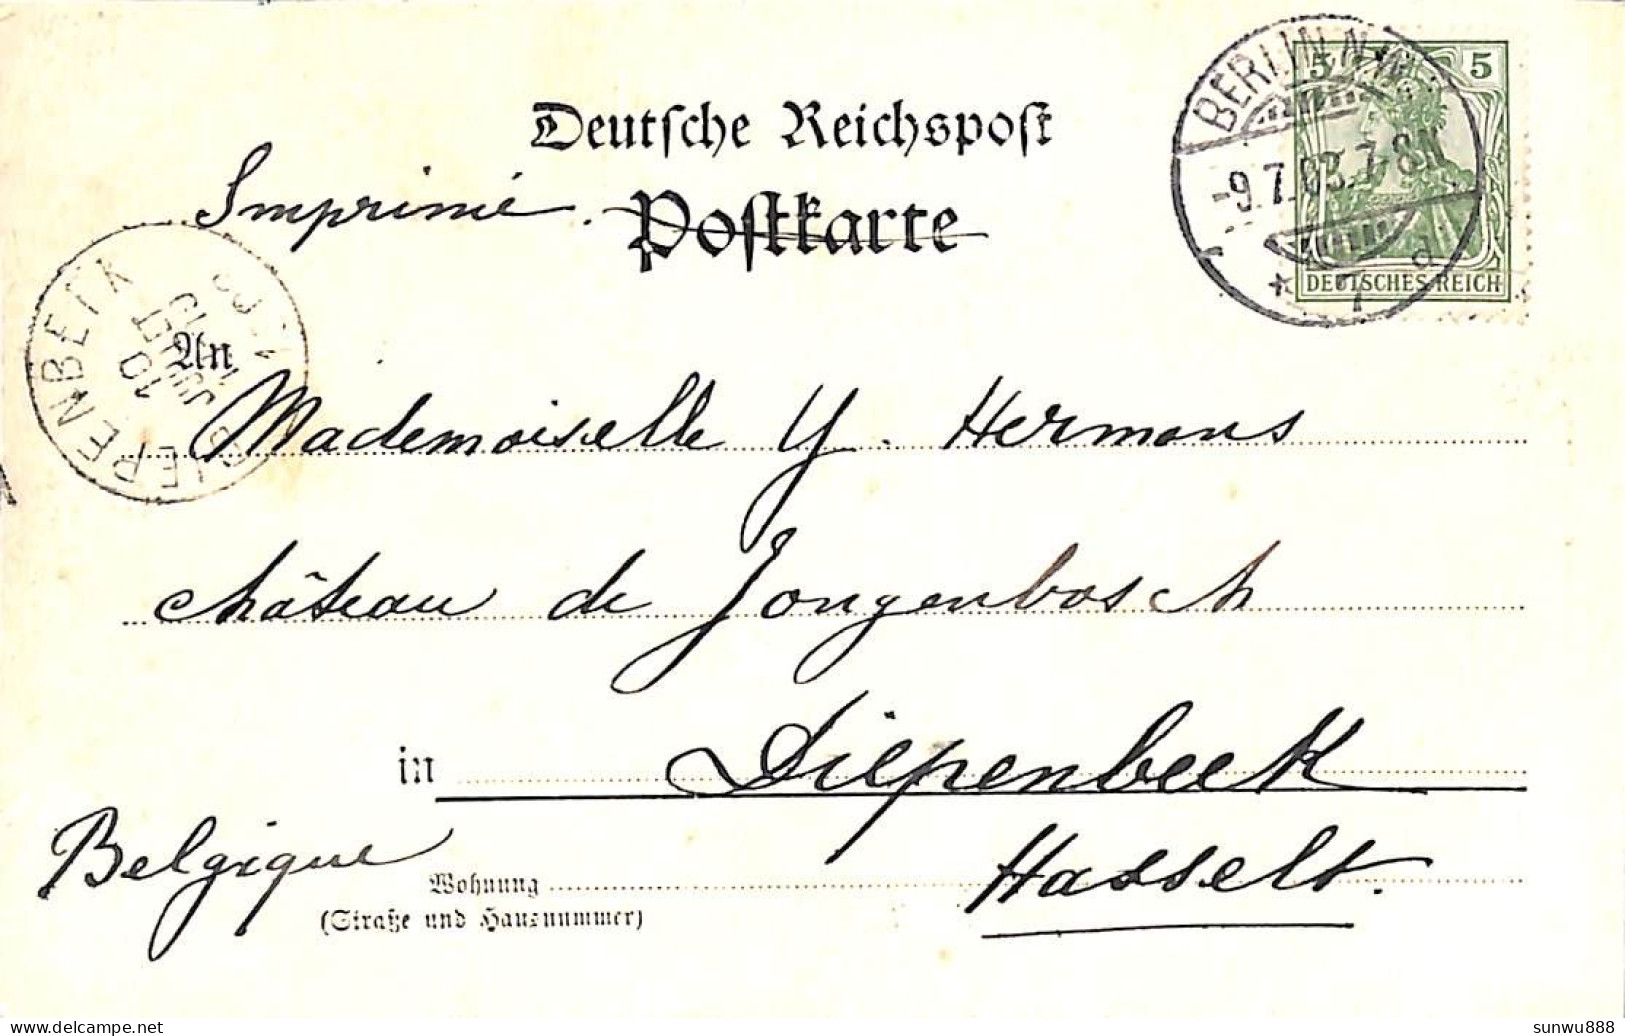 BERLIN N.W.
5 5
-9.7.03.7-8N
* 7 d
DEUTSCHES REICH
Deutsche Reichspost
Imprimé. Postkarte
DIEPENBEEK
10
JUIL
An
Mademoiselle Y. Hermans
château de Jongenbosch
in Diepenbeek
Belgique
Wohnung Hasselt.
(Straße und Hausnummer)
delcampe.net
sunwu888